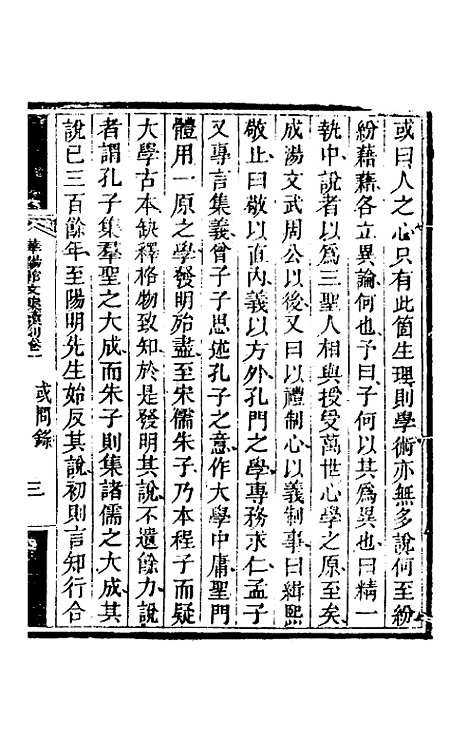 或曰人之心只有此箇生理則學術亦無多說何至紛
紛藉藉各立異論何也予曰子何以其爲異也曰精一
執中說者以爲三聖人相與授受萬世心學之原至矣
成湯文武周公以後又曰以禮制心以義制事曰緝熙
敬止曰敬以直內義以方外孔門之學專務求仁孟子
又專言集義曾子子思述孔子之意作大學中庸聖門
體用一原之學發明殆盡至宋儒朱子乃本程子而疑
大學古本缺釋格物致知於是發明其說不遺餘力說
者謂孔子集羣聖之大成而朱子則集諸儒之大成其
說已三百餘年至陽明先生始反其說初則言知行合
華陽館文集續刻卷一
或問錄
三